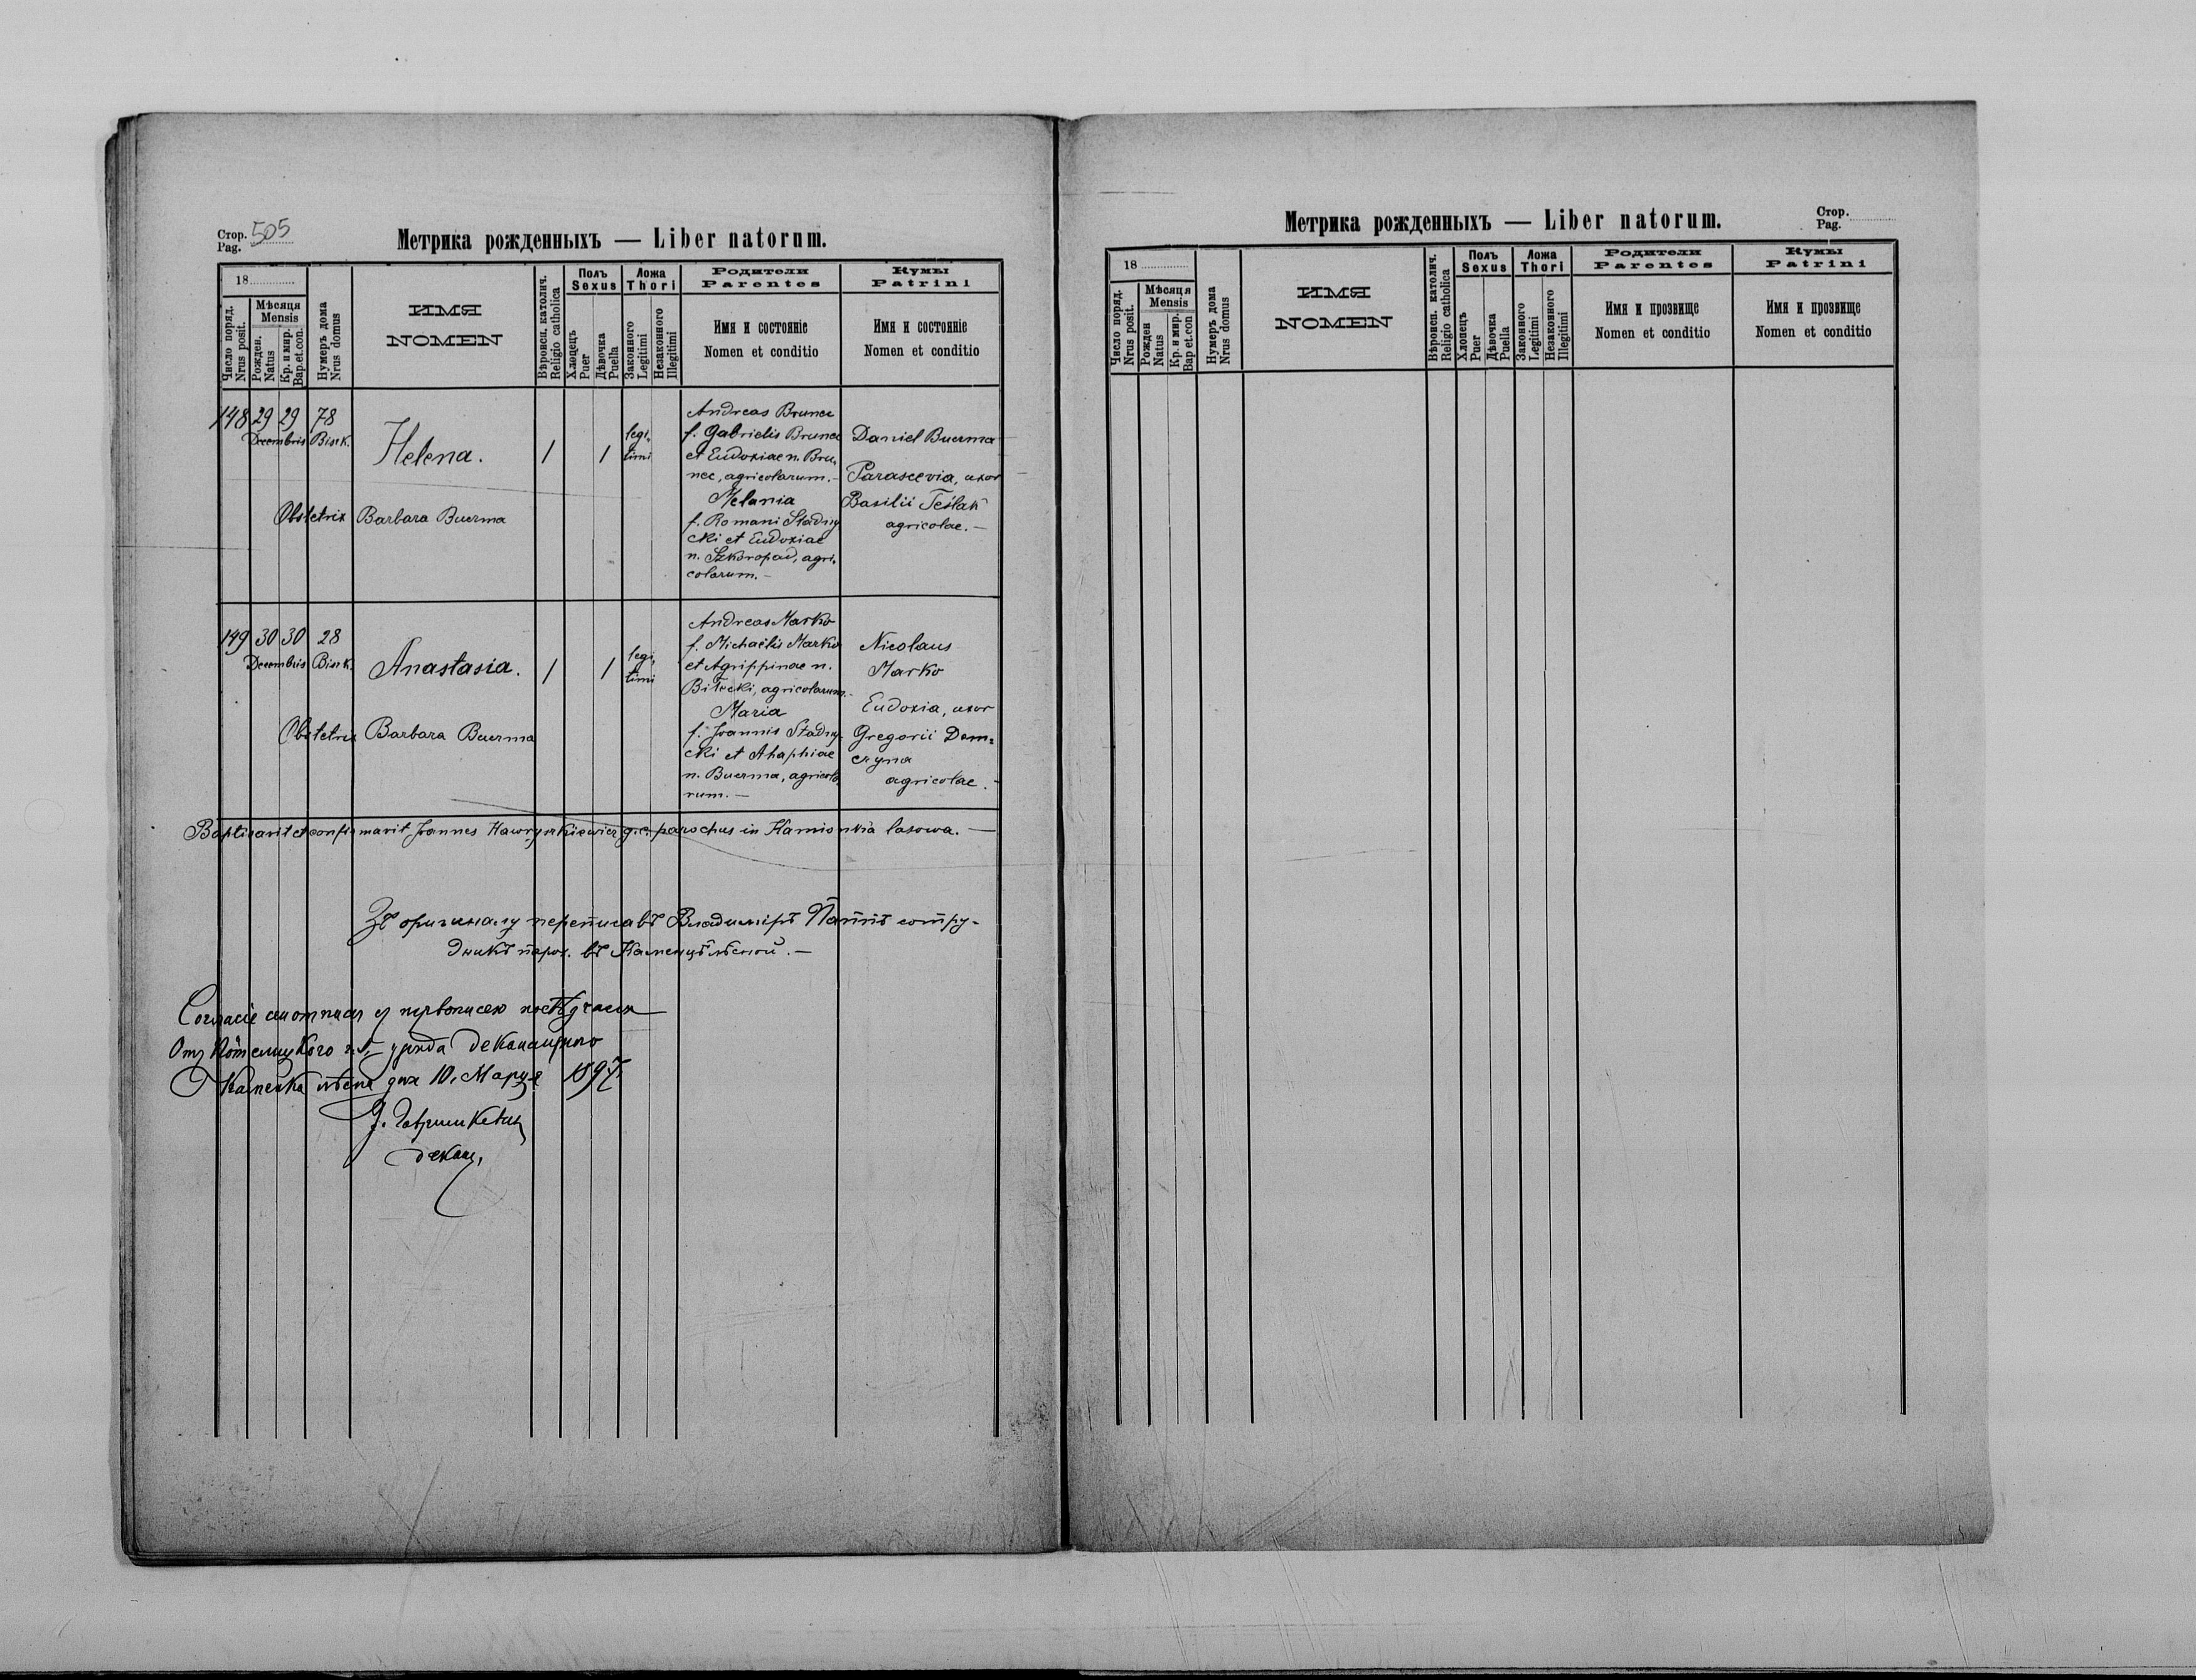 Стор. 505
Pag.
Метрика рожденныхъ — Liber natorum.
18
Число поряд.
Nrus posit.
Мѣсяця
Mensis
Рожден.
Natus
Кр. и мир.
Bap. et. con.
Нумеръ дома
Nrus domus
ИМЯ
NOMEN
Вѣроисп. католич.
Religio catholica
Полъ
Sexus
Хлопецъ
Puer
Дѣвочка
Puella
Ложа
Thori
Законного
Legitimi
Незаконного
Illegitimi
Родители
Parentes
Имя и состоянiе
Nomen et conditio
Кумы
Patrini
Имя и состоянiе
Nomen et conditio
148 29 29 78
Decembris Bisık.
Helena.
1 1
legi-
timi
Andreas Brunec
f. Gabrielis Brunec
et Eudoxiae n. Bru-
nec, agricolarum.—
Melania
f. Romani Stadny
cki et Eudoxiae
n. Szkoropad, agri-
colarum.—
Daniel Buerma
Parascevia, uxor
Basilii Teślak
agricolae.—
Obstetrix Barbara Buerma
149 30 30 28
Decembris Bisık.
Anastasia.
1 1
legi-
timi
Andreas Marko
f. Michaëlis Marko
et Agrippinae n.
Biłecki, agricolarum.—
Maria
f. Joannis Stadny-
cki et Ahaphiae
n. Buerma, agricola
rum.—
Nicolaus
Marko
Eudoxia, uxor
Gregorii Dem=
czyna
agricolae.—
Obstetrix Barbara Buerma
Baptisavit et confirmavit Joannes Hawryszkiewicz g. c. parochus in Kamionka lasowa.—
Зъ оригиналу переписавъ Владимiръ сотру-
дникъ парох. въ Каменцѣ лѣсной.—
Согласiе
Отъ деканального
Каменка лѣсна дня 10. Марця 1897.
I. Гавришкевич
декан,
Метрика рожденныхъ — Liber natorum.
Стор.
Pag.
18
Число поряд.
Nrus posit.
Мѣсяця
Mensis
Рожден
Natus
Кр. и мир.
Bap et.con
Нумеръ дома
Nrus domus
ИМЯ
NOMEN
Вѣроисп. католич.
Religio catholica
Полъ
Sexus
Хлопецъ
Puer
Дѣвочка
Puella
Ложа
Thori
Законного
Legitimi
Незаконного
Illegitimi
Родители
Parentes
Имя и прозвище
Nomen et conditio
Кумы
Patrini
Имя и прозвище
Nomen et conditio